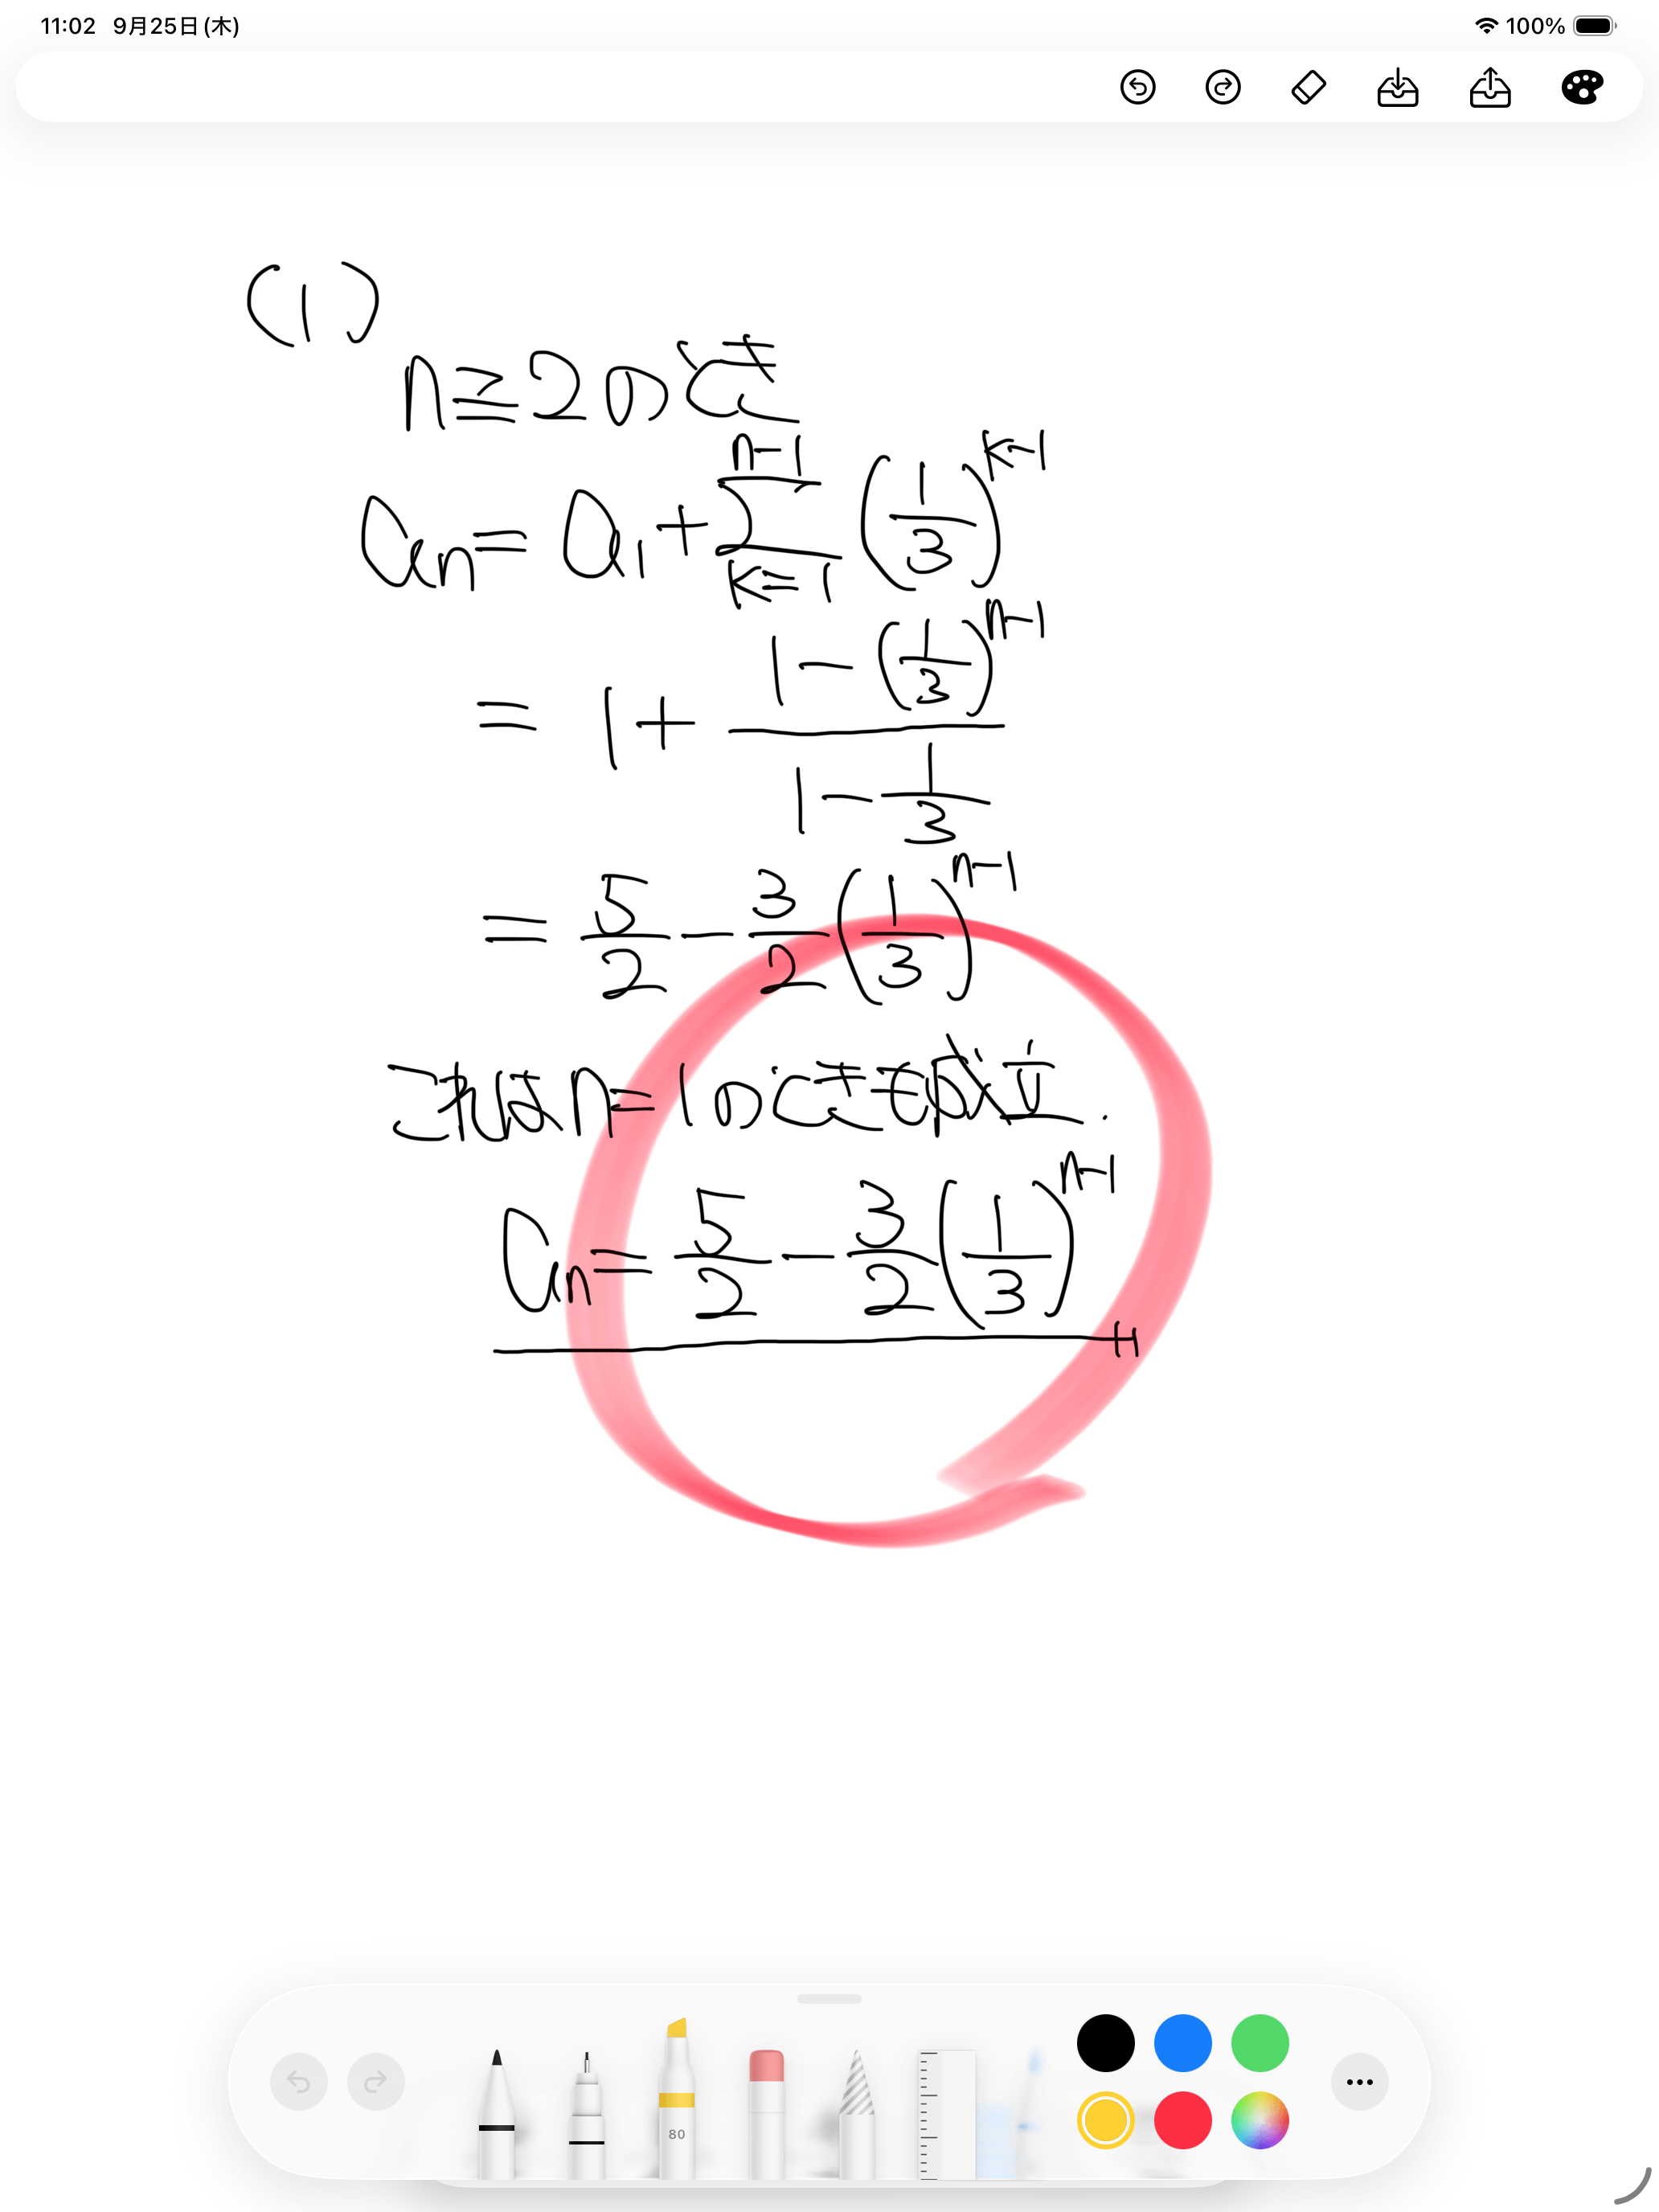 11:02 9月25日(木) 100%
(1)
n≧2のとき
aₙ = a₁ + Σ_{k=1}^{n-1} (1/3)^{k-1}
= 1 + (1-(1/3)^{n-1})/(1-1/3)
= 5/2 - 3/2 (1/3)^{n-1}
これは n=1のときも成立.
aₙ = 5/2 - 3/2 (1/3)^{n-1}
80